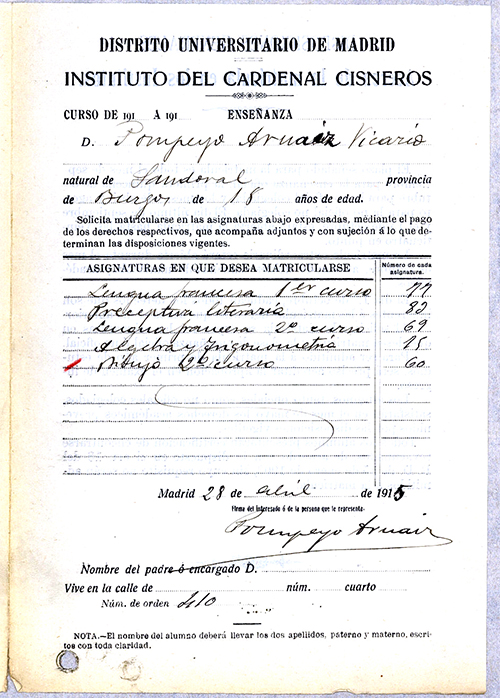 DISTRITO UNIVERSITARIO DE MADRID
INSTITUTO DEL CARDENAL CISNEROS
CURSO DE 191 A 191 ENSEÑANZA
D. Pompeyo Arnaiz Vicario
natural de Sandoval provincia
de Burgos de 18 años de edad.
Solicita matricularse en las asignaturas abajo expresadas, mediante el pago
de los derechos respectivos, que acompaña adjuntos y con sujeción á lo que de-
terminan las disposiciones vigentes.
ASIGNATURAS EN QUE DESEA MATRICULARSE Número de cada asignatura.
Lengua francesa 1er curso 77
Preceptiva literaria 83
Lengua francesa 2º curso 69
Algebra y Trigonometría 15
Dibujo 2º curso 60
Madrid 28 de abril de 1915
Firma del interesado ó de la persona que le representa.
Pompeyo Arnaiz
Nombre del padre ó encargado D.
Vive en la calle de núm. cuarto
Núm. de orden 410
NOTA.—El nombre del alumno deberá llevar los dos apellidos, paterno y materno, escri-
tos con toda claridad.